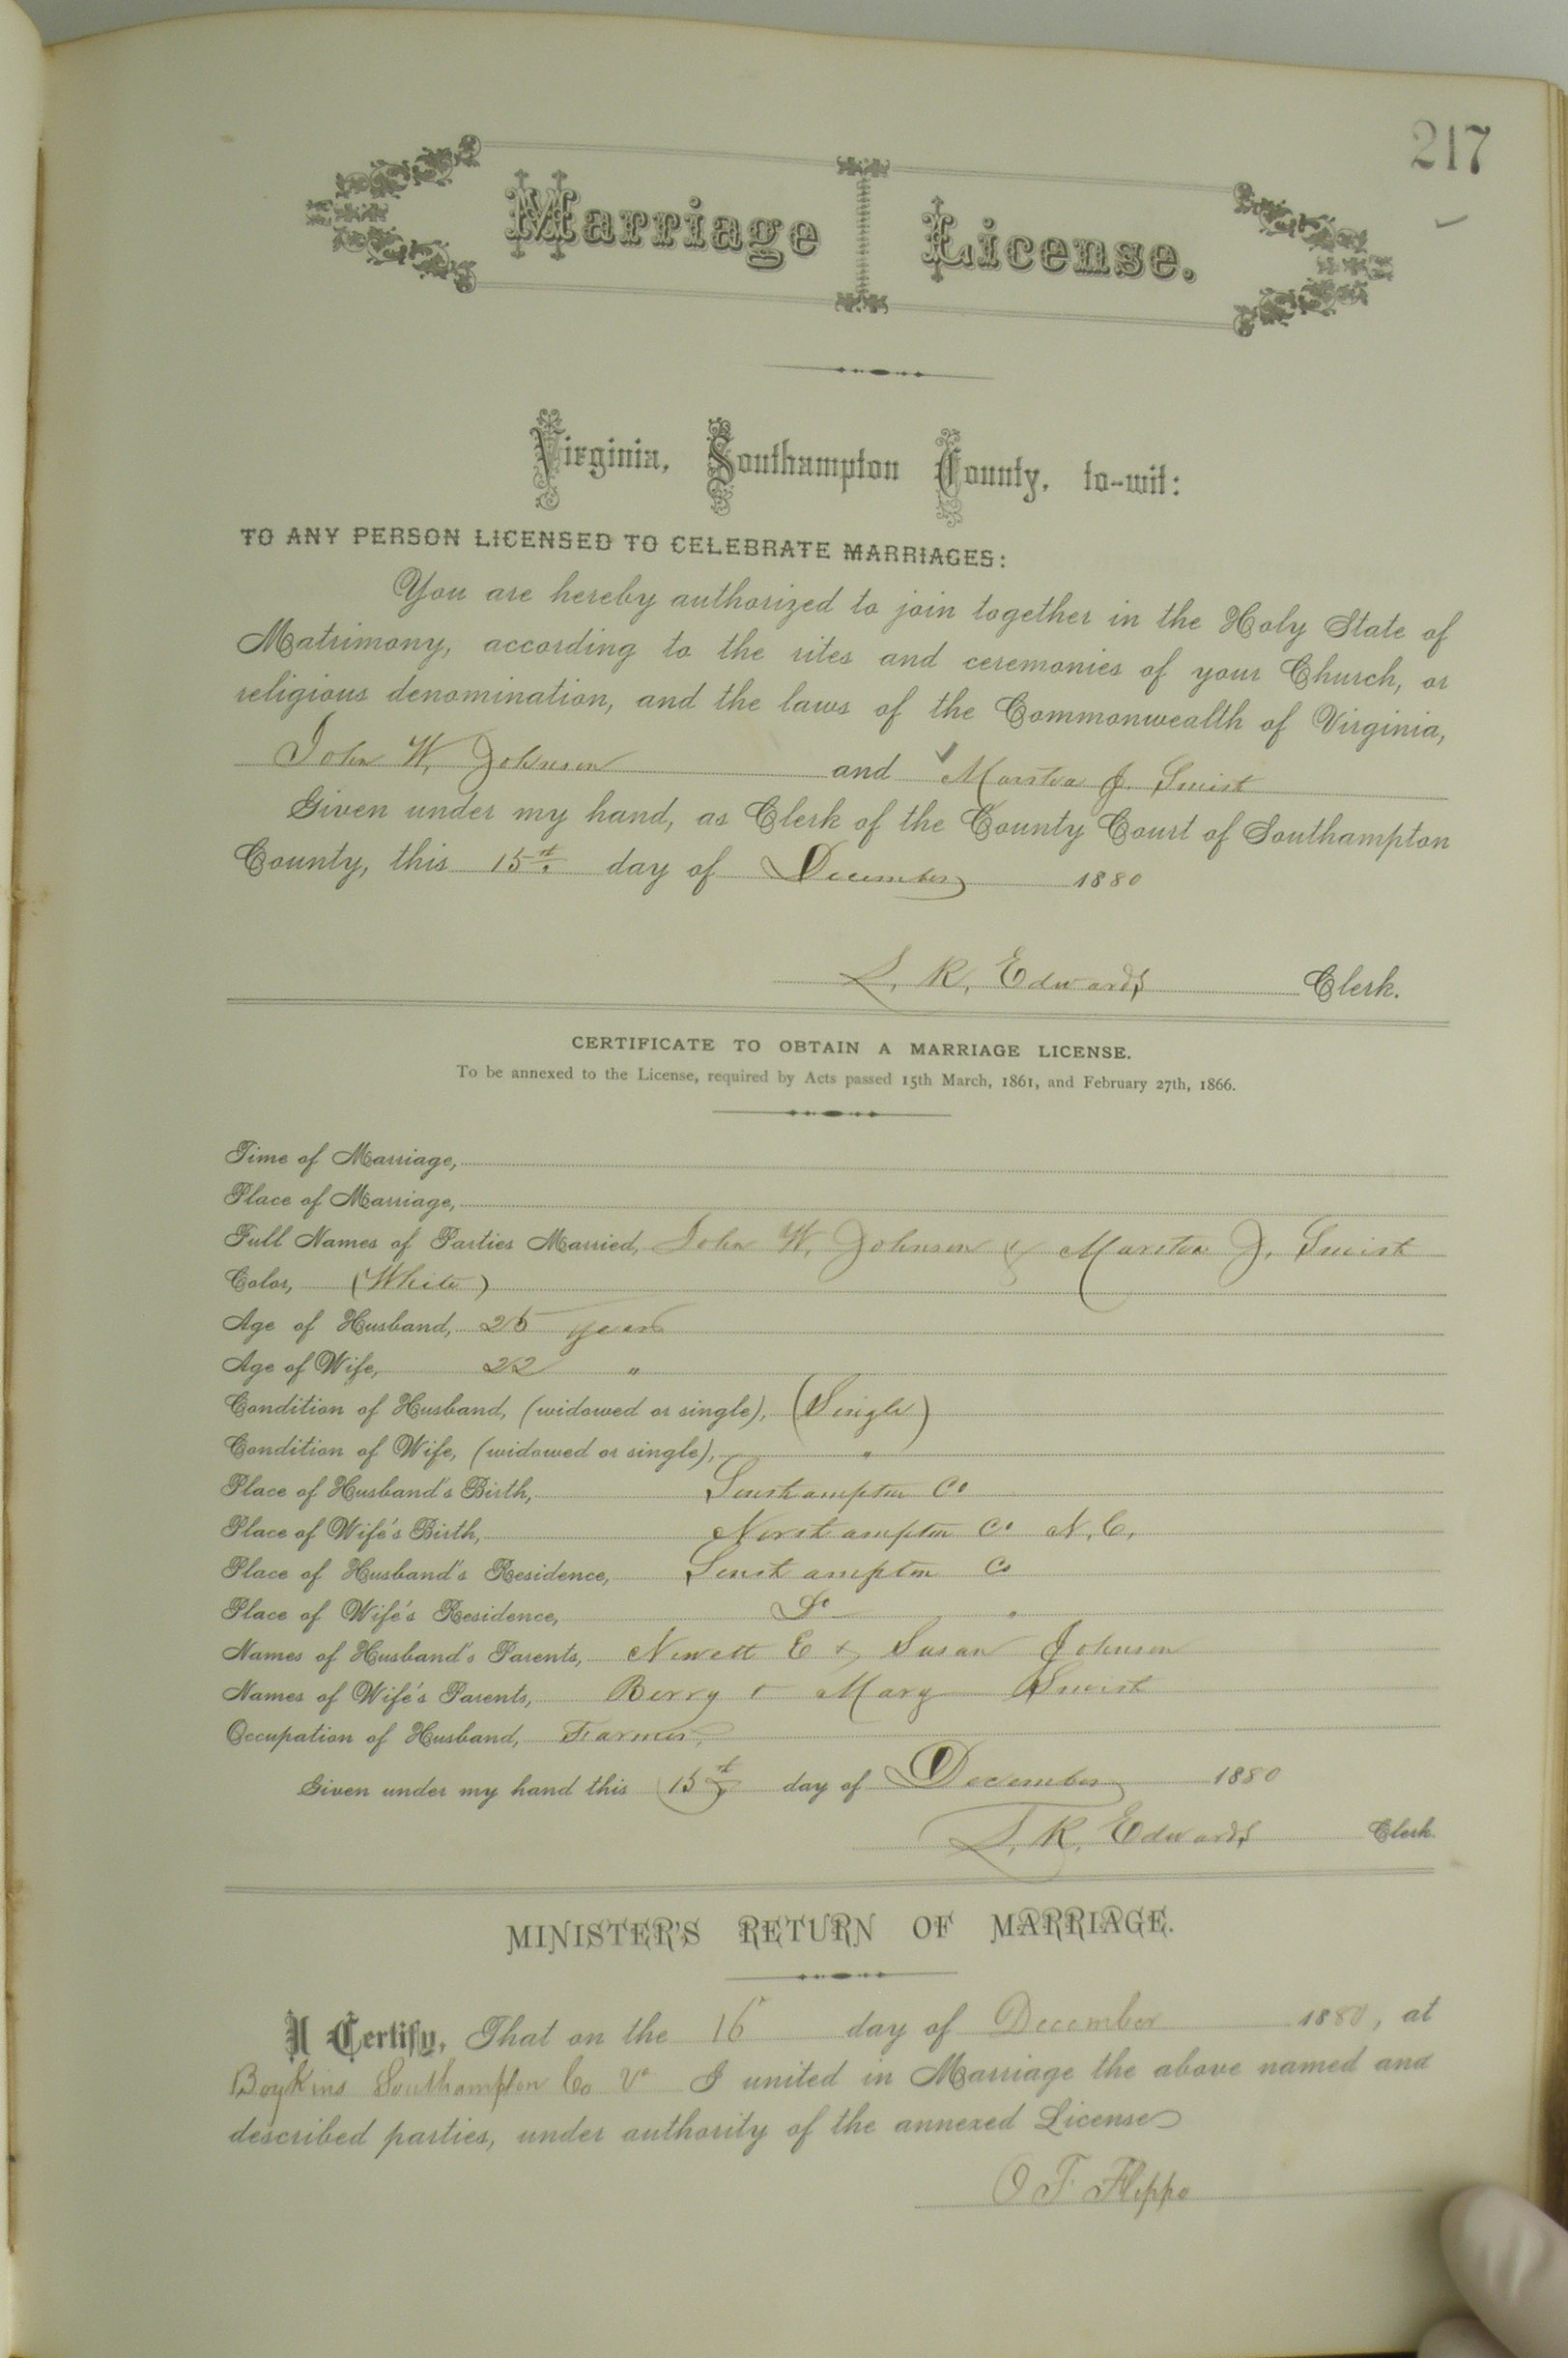 217
Marriage License.
Virginia, Southampton County, to-wit:
TO ANY PERSON LICENSED TO CELEBRATE MARRIAGES:
You are hereby authorized to join together in the Holy State of
Matrimony, according to the rites and ceremonies of your Church, or
religious denomination, and the laws of the Commonwealth of Virginia,
John W. Johnson and J.
Given under my hand, as Clerk of the County Court of Southampton
County, this 15th day of December 1880
L. R. Edwards Clerk.
CERTIFICATE TO OBTAIN A MARRIAGE LICENSE.
To be annexed to the License, required by Acts passed 15th March, 1861, and February 27th, 1866.
Time of Marriage,
Place of Marriage,
Full Names of Parties Married, John W. Johnson & J.
Color, (White)
Age of Husband, 25 years
Age of Wife, 22 "
Condition of Husband, (widowed or single), (Single)
Condition of Wife, (widowed or single), "
Place of Husband's Birth, Southampton Co
Place of Wife's Birth, Northampton Co N.C.
Place of Husband's Residence, Southampton Co
Place of Wife's Residence, Do "
Names of Husband's Parents, Newett E & Susan Johnson
Names of Wife's Parents, Berry & Mary
Occupation of Husband, Farmer,
Given under my hand this 15th day of December 1880
L. R. Edwards Clerk.
MINISTER'S RETURN OF MARRIAGE.
I Certify, That on the 16" day of December 1880, at
Boykins Southampton Co Va I united in Marriage the above named and
described parties, under authority of the annexed License
O F Flippo